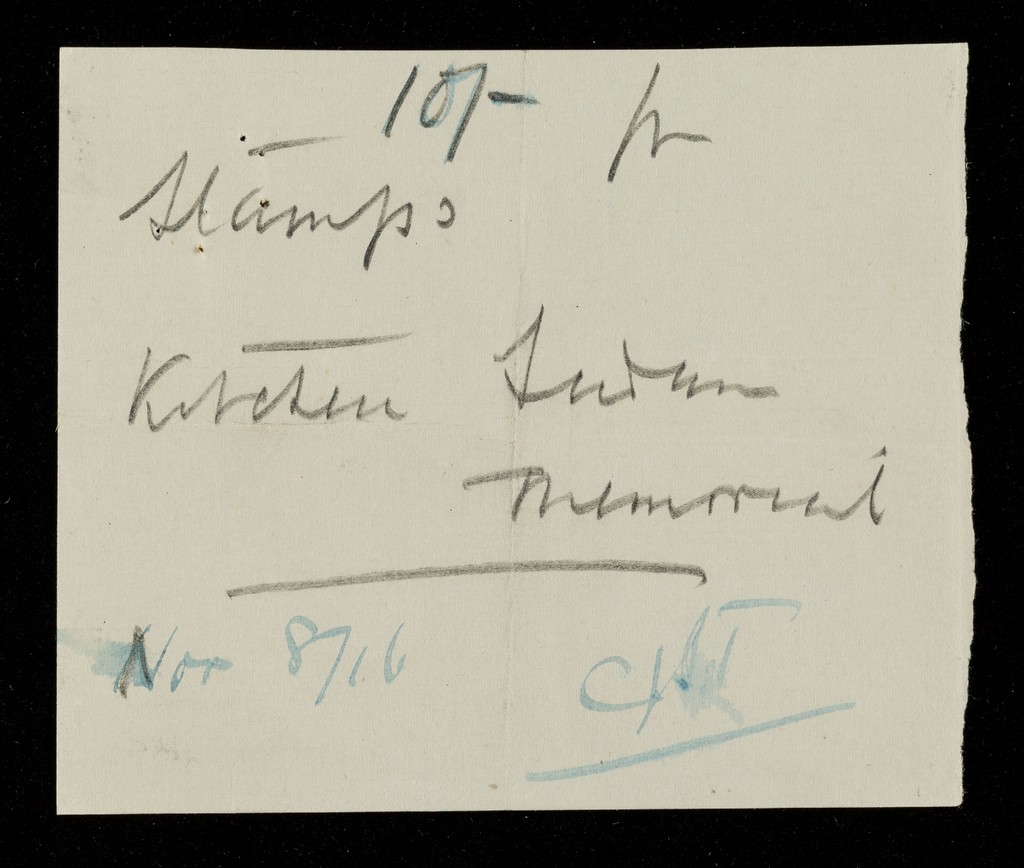 10/- for
Stamps
Kitchen Sudan
Memorial
Nov 8/16